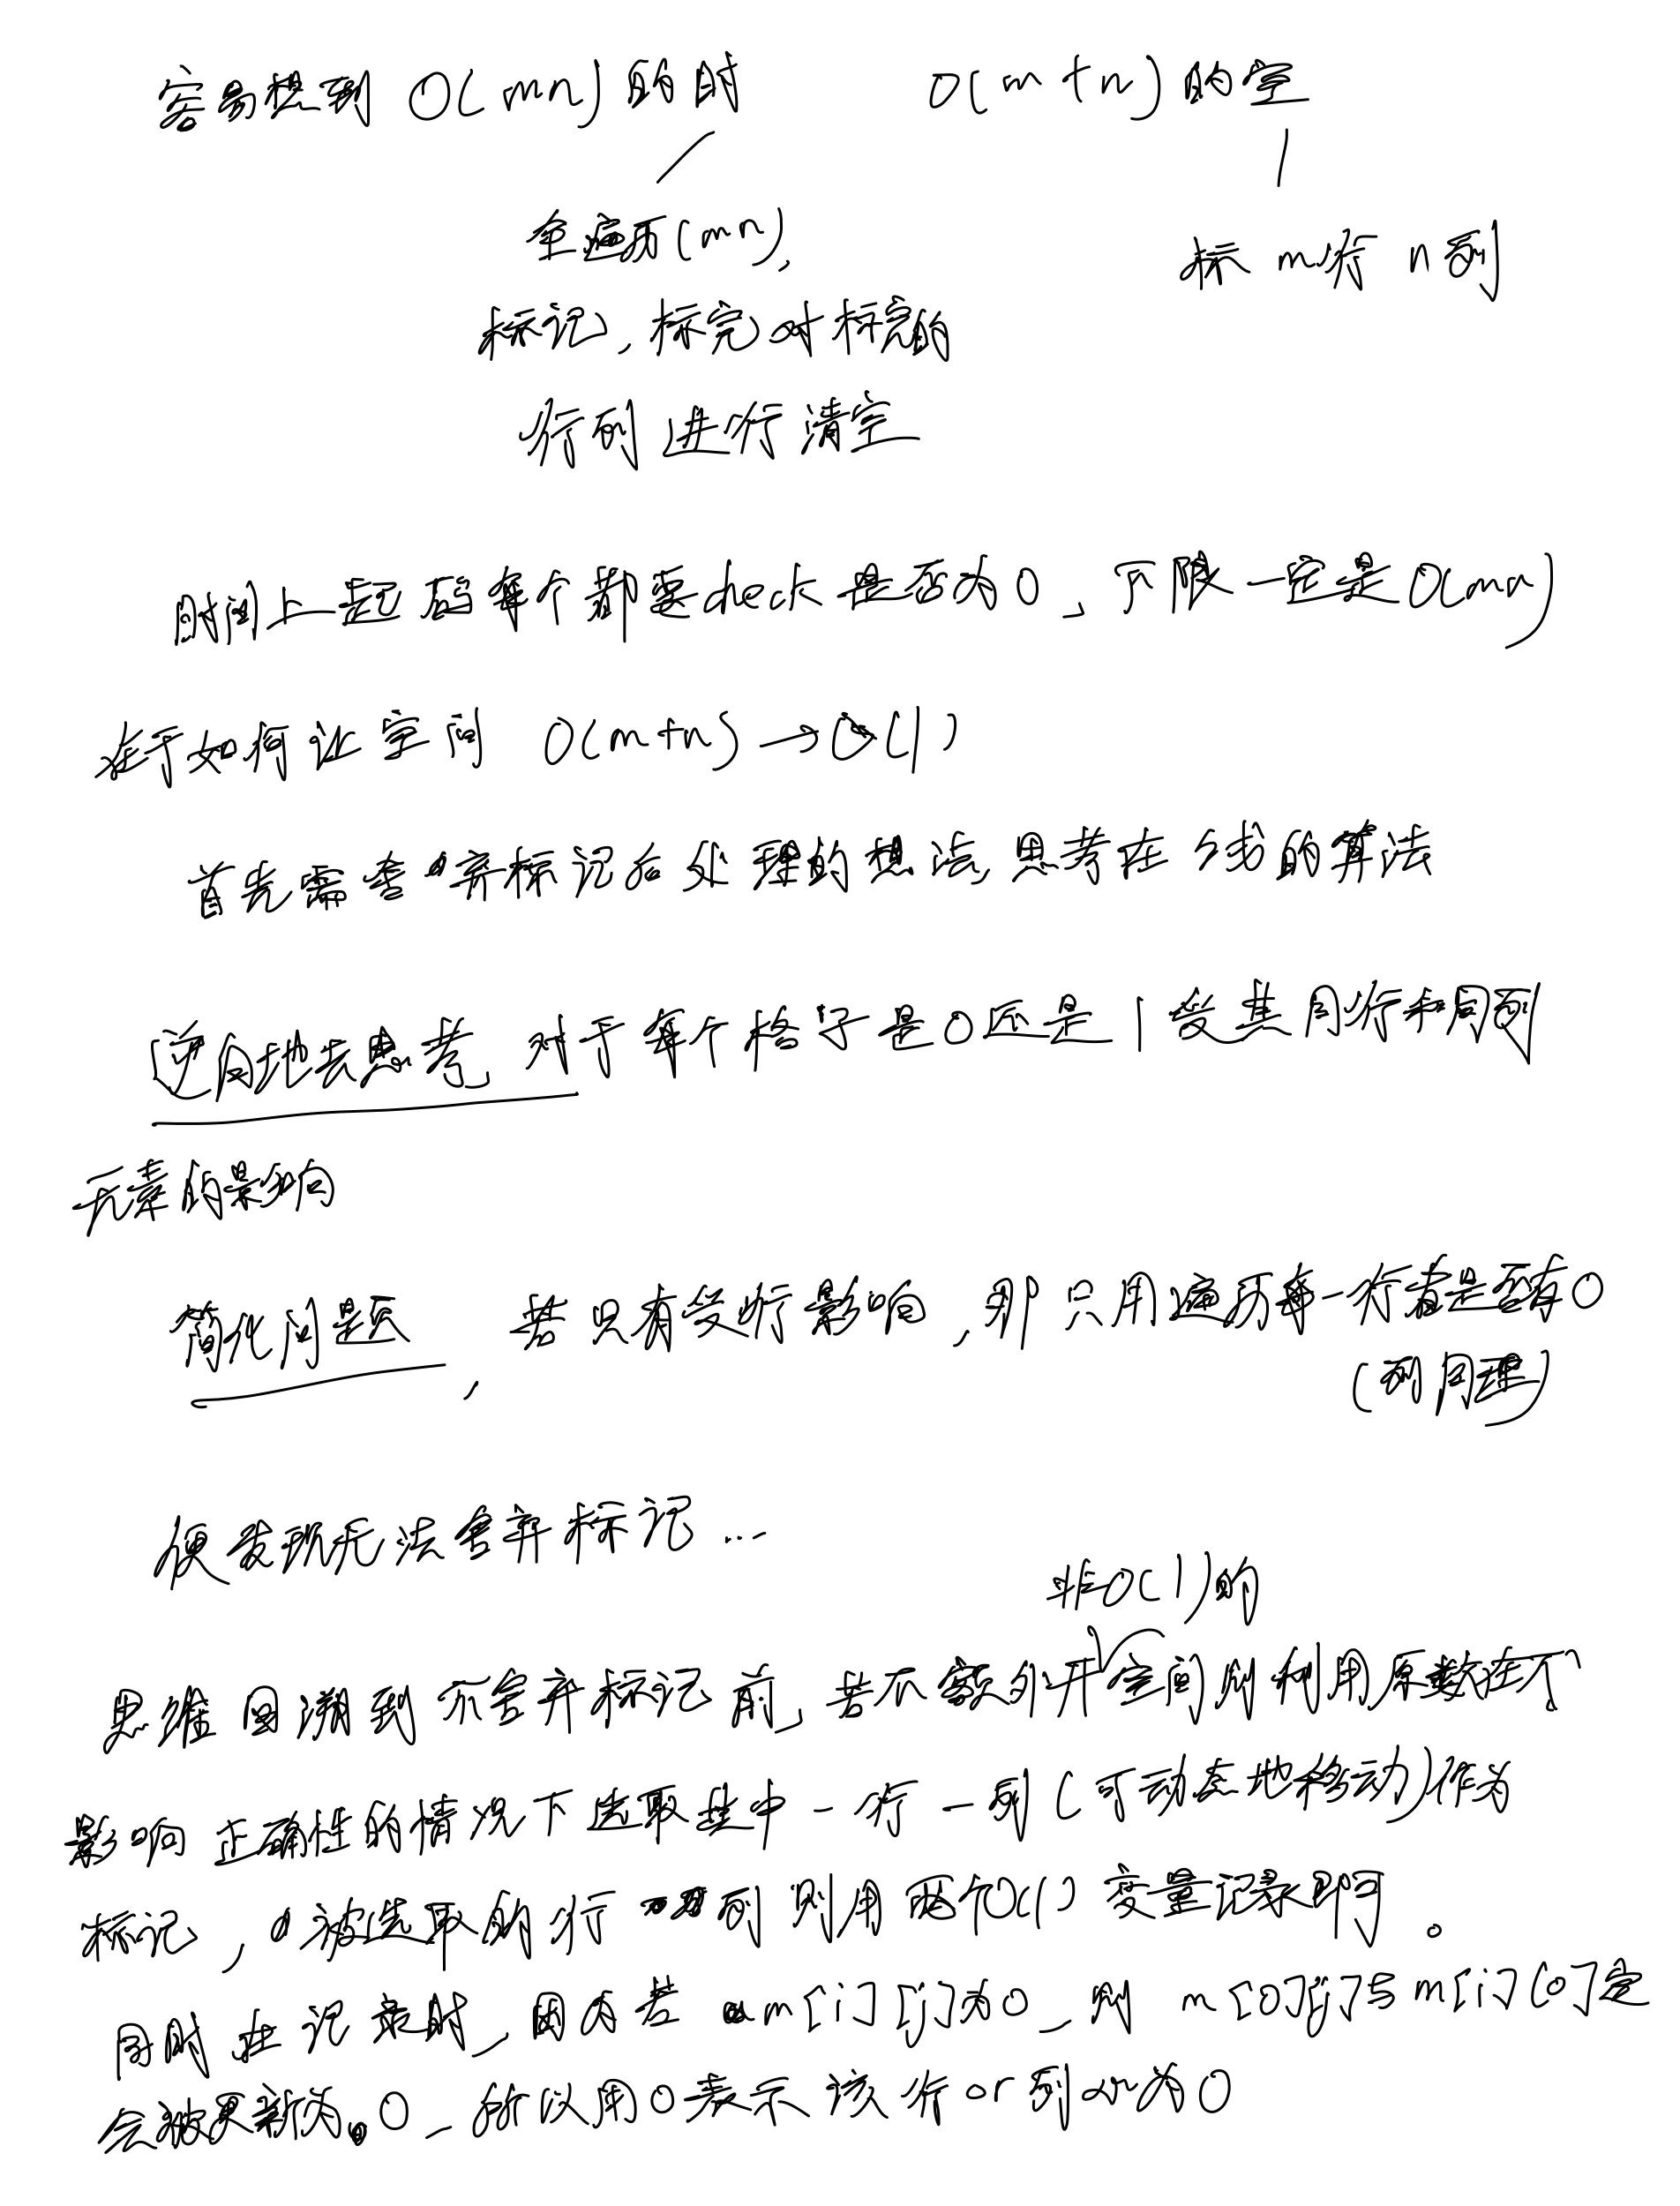 容易想到 O(mn)的时 O(m+n)的空
全遍历(mn),
标 m行 n列
标记,标完对标完的
行列进行清空
时间上起码每个都要check是否为0,下限一定是O(mn)
在于如何让空间 O(m+n)→O(1)
首先需舍弃标记后处理的想法,思考在线的算法
逆向地去思考,对于每个格子是0还是1受其同行和同列
元素的影响
简化问题,若只有受行影响,那只用遍历每一行看是否有0
(列同理)
便发现无法舍弃标记...
非O(1)的
思维回溯到不舍弃标记前,若不额外开空间则利用原数在不
影响正确性的情况下选取其中一行一列(可动态地移动)作为
标记,被选取的行列则用两个O(1)变量记录即可。
同时在记录时,因为若m[i][j]为0,则m[0][j]与m[i][0]定
会被更新为0,所以用0表示该行or列all为0